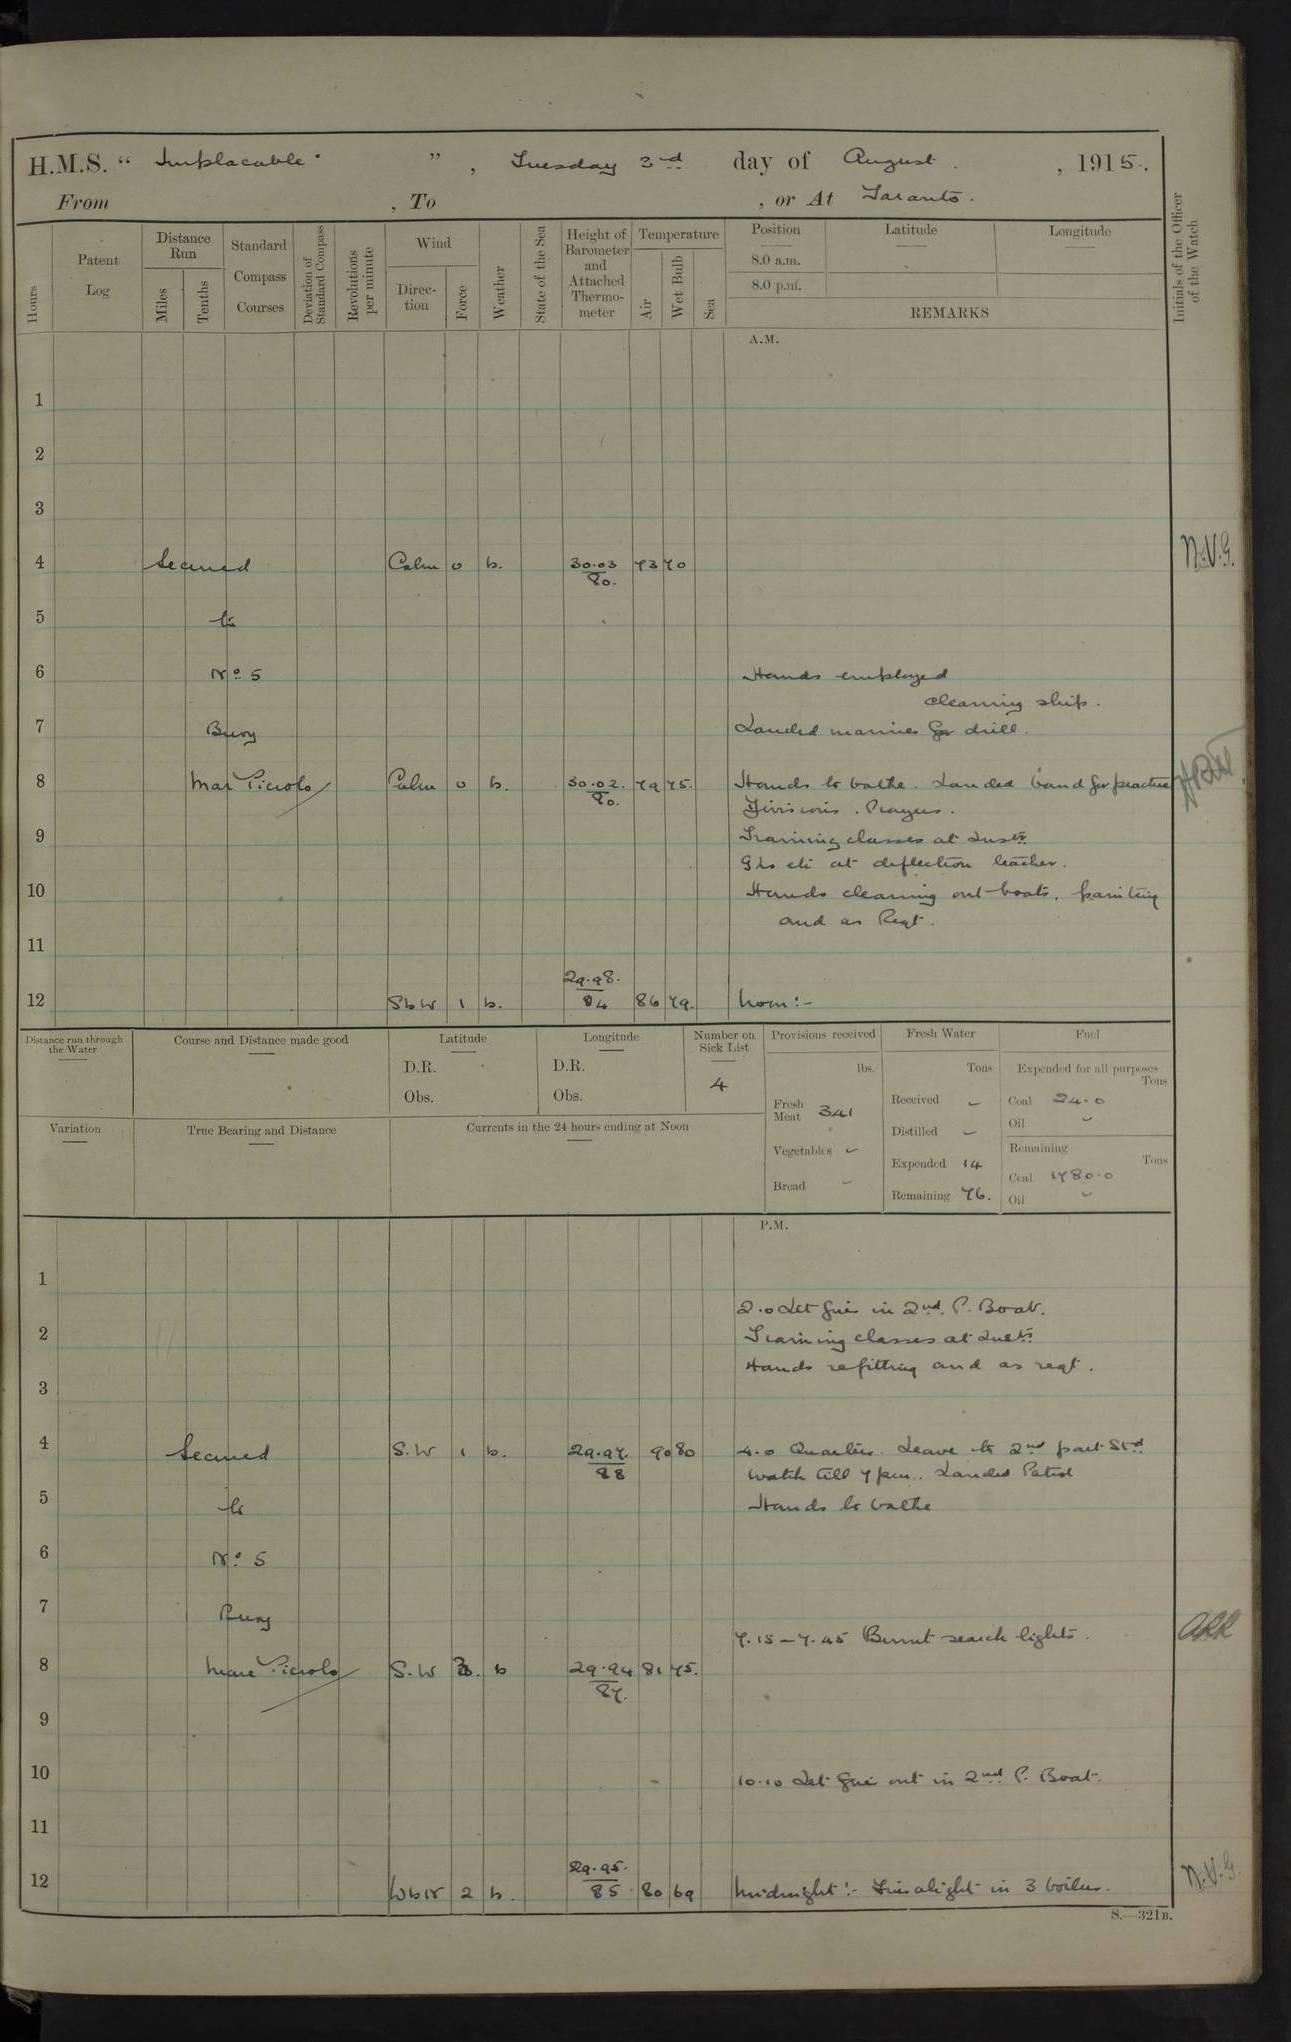 H.M.S. “ Implacable ” , Tuesday 3rd day of August , 1915.
From , To , or At Taranto.
Hours
Patent Log
Distance Run
Miles
Tenths
Standard Compass Courses
Deviation of Standard Compass
Revolutions per minute
Wind
Direc-tion
Force
Weather
State of the Sea
Height of Barometer and Attached Thermo-meter
Temperature
Air
Wet Bulb
Sea
Position Latitude Longitude
8.0 a.m.
8.0 p.m.
REMARKS
Initials of the Officer of the Watch
A.M.
1
2
3
4 Secured Calm 0 b. 30.03 80. 73 70 N.V.G.
5 to
6 No 5 Hands employed
cleaning ship.
7 Buoy Landed marines for drill.
8 Mar Piccolo Calm 0 b. 30.02. 80. 79 75. Hands to bathe. Landed band for practice
Divisions. Prayers.
9 Training classes at Instn
GLs etc at deflection teacher.
10 Hands cleaning out boats, painting
and as Reqt.
11
12 SbW 1 b. 29.98. 84 86 79. Noon:-
Distance run through the Water
Course and Distance made good
Latitude
D.R.
Obs.
Longitude
D.R.
Obs.
Number on Sick List
4
Provisions received
lbs.
Fresh Meat 341
Vegetables -
Bread -
Fresh Water
Tons
Received -
Distilled -
Expended 14
Remaining 76.
Fuel
Expended for all purposes
Tons
Coal 24.0
Oil -
Remaining
Tons
Coal 1780.0
Oil -
Variation
True Bearing and Distance
Currents in the 24 hours ending at Noon
P.M.
1
2.0 Let fires in 2nd P. Boat.
2 Training classes at Instn
Hands refitting and as reqt.
3
4 Secured S.W 1 b. 29.97. 88 90 80 4.0 Quarters. Leave to 2nd part Stbd
watch till 7 pm. Landed Patrol
5 to Hands to bathe
6 No 5
7 Buoy
7.15 - 7.45 Burnt search lights.
8 Mare Piccolo S.W 3. b 29.94 87. 81 75.
9
10 10.10 Let fire out in 2nd P. Boat.
11
12 WbN 2 b. 29.95. 85 80 69 Midnight:- Fires alight in 3 boilers. N.V.G.
S.—321B.